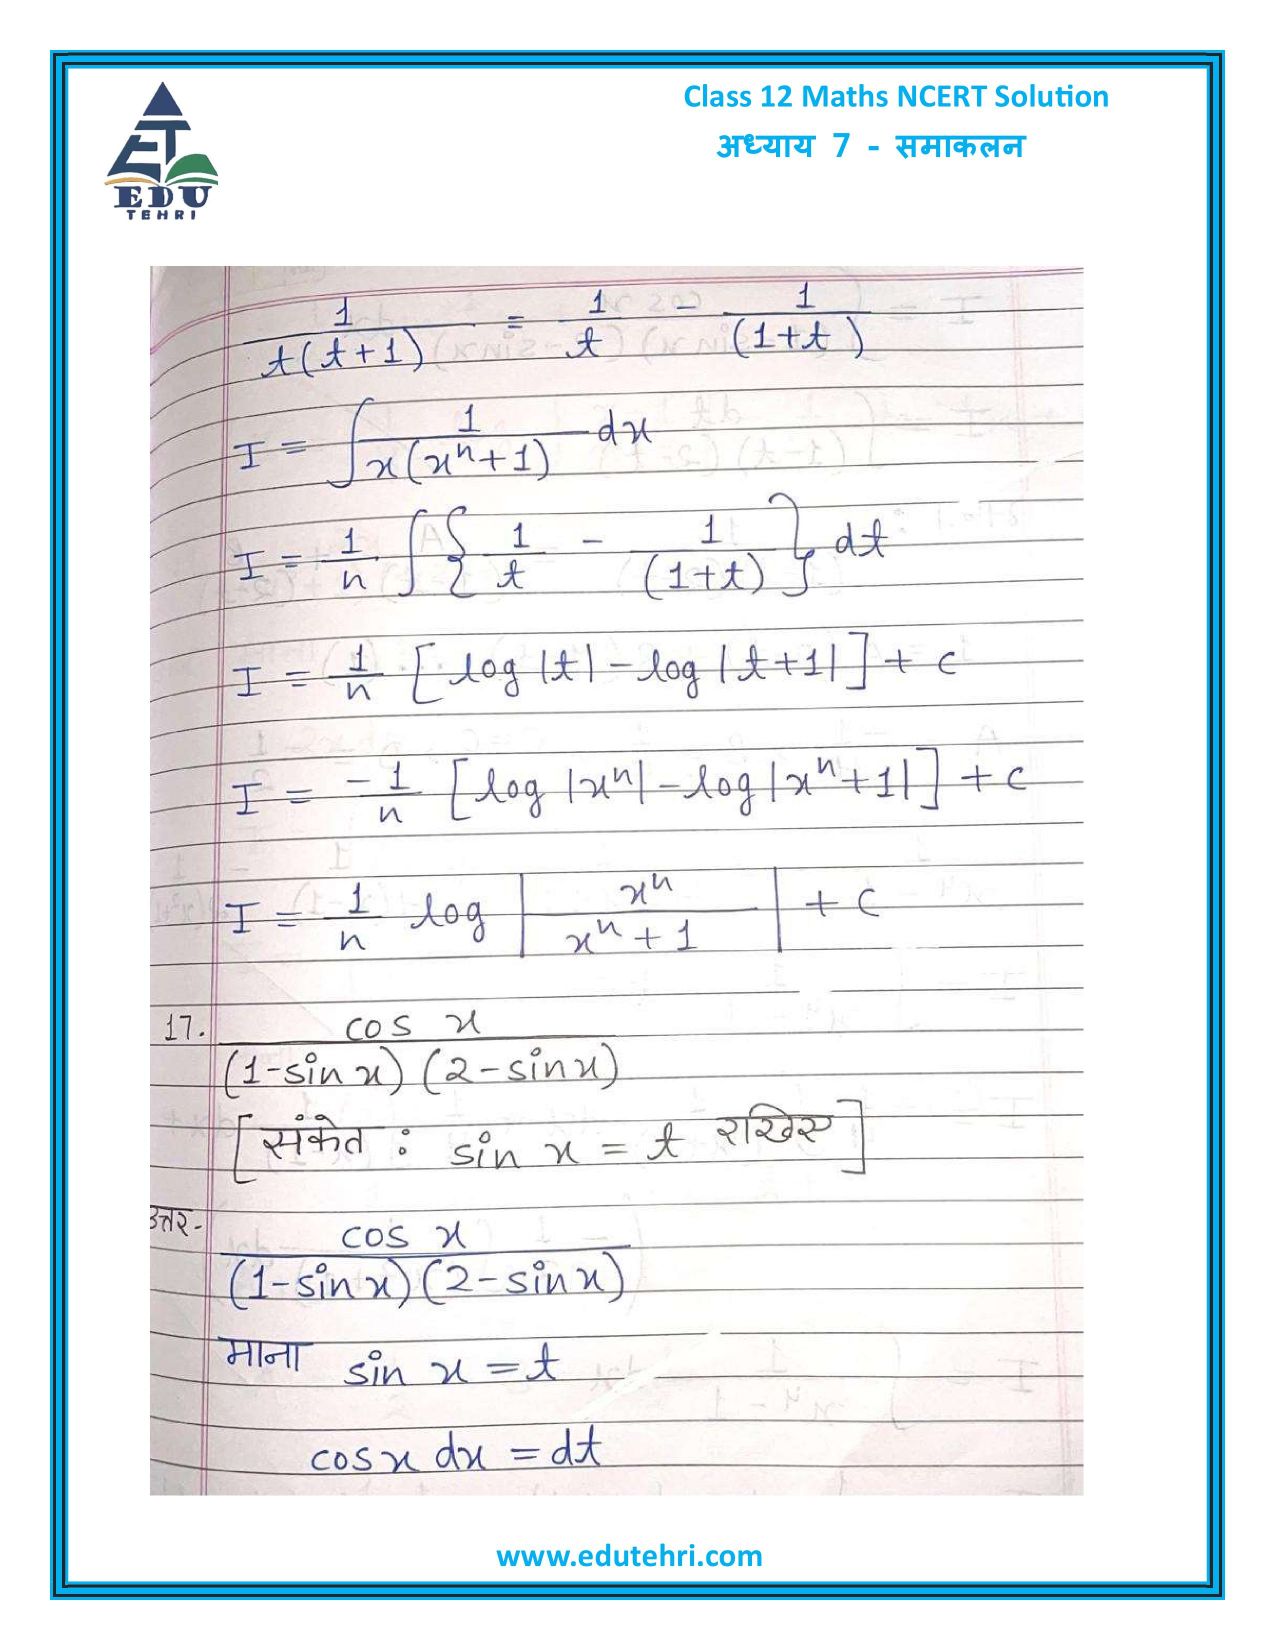 Class 12 Maths NCERT Solution
अध्याय 7 - समाकलन
ET
EDU
TEHRI
1/(t(t+1)) = 1/t - 1/(1+t)
I = ∫ 1/(x(xⁿ+1)) dx
I = 1/n ∫ { 1/t - 1/(1+t) } dt
I = 1/n [log|t| - log|t+1|] + c
I = -1/n [log|xⁿ| - log|xⁿ+1|] + c
I = 1/n log | xⁿ/(xⁿ+1) | + c
17. cos x/((1-sin x)(2-sin x))
[संकेत : sin x = t रखिए]
उत्तर- cos x/((1-sin x)(2-sin x))
माना sin x = t
cos x dx = dt
www.edutehri.com